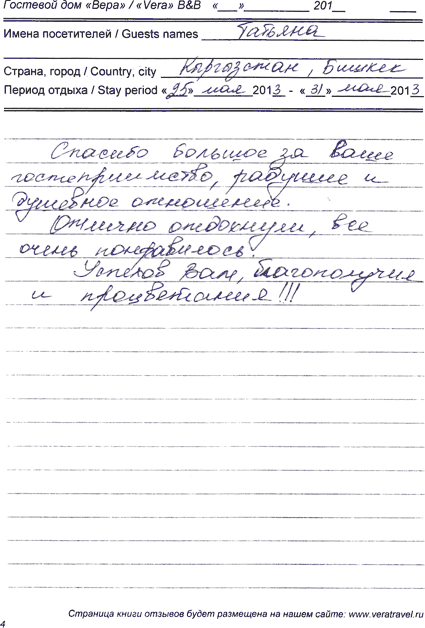 Гостевой дом «Вера» / «Vera» B&B «___»__________ 201__
Имена посетителей / Guests names Татьяна
Страна, город / Country, city Кыргызстан, Бишкек
Период отдыха / Stay period «25» мая 2013 - «31» мая 2013
Спасибо большое за ваше
гостеприимство, радушие и
душевное отношение.
Отлично отдохнули, все
очень понравилось.
Успехов Вам, благополучия
и процветания!!!
Страница книги отзывов будет размещена на нашем сайте: www.veratravel.ru
4